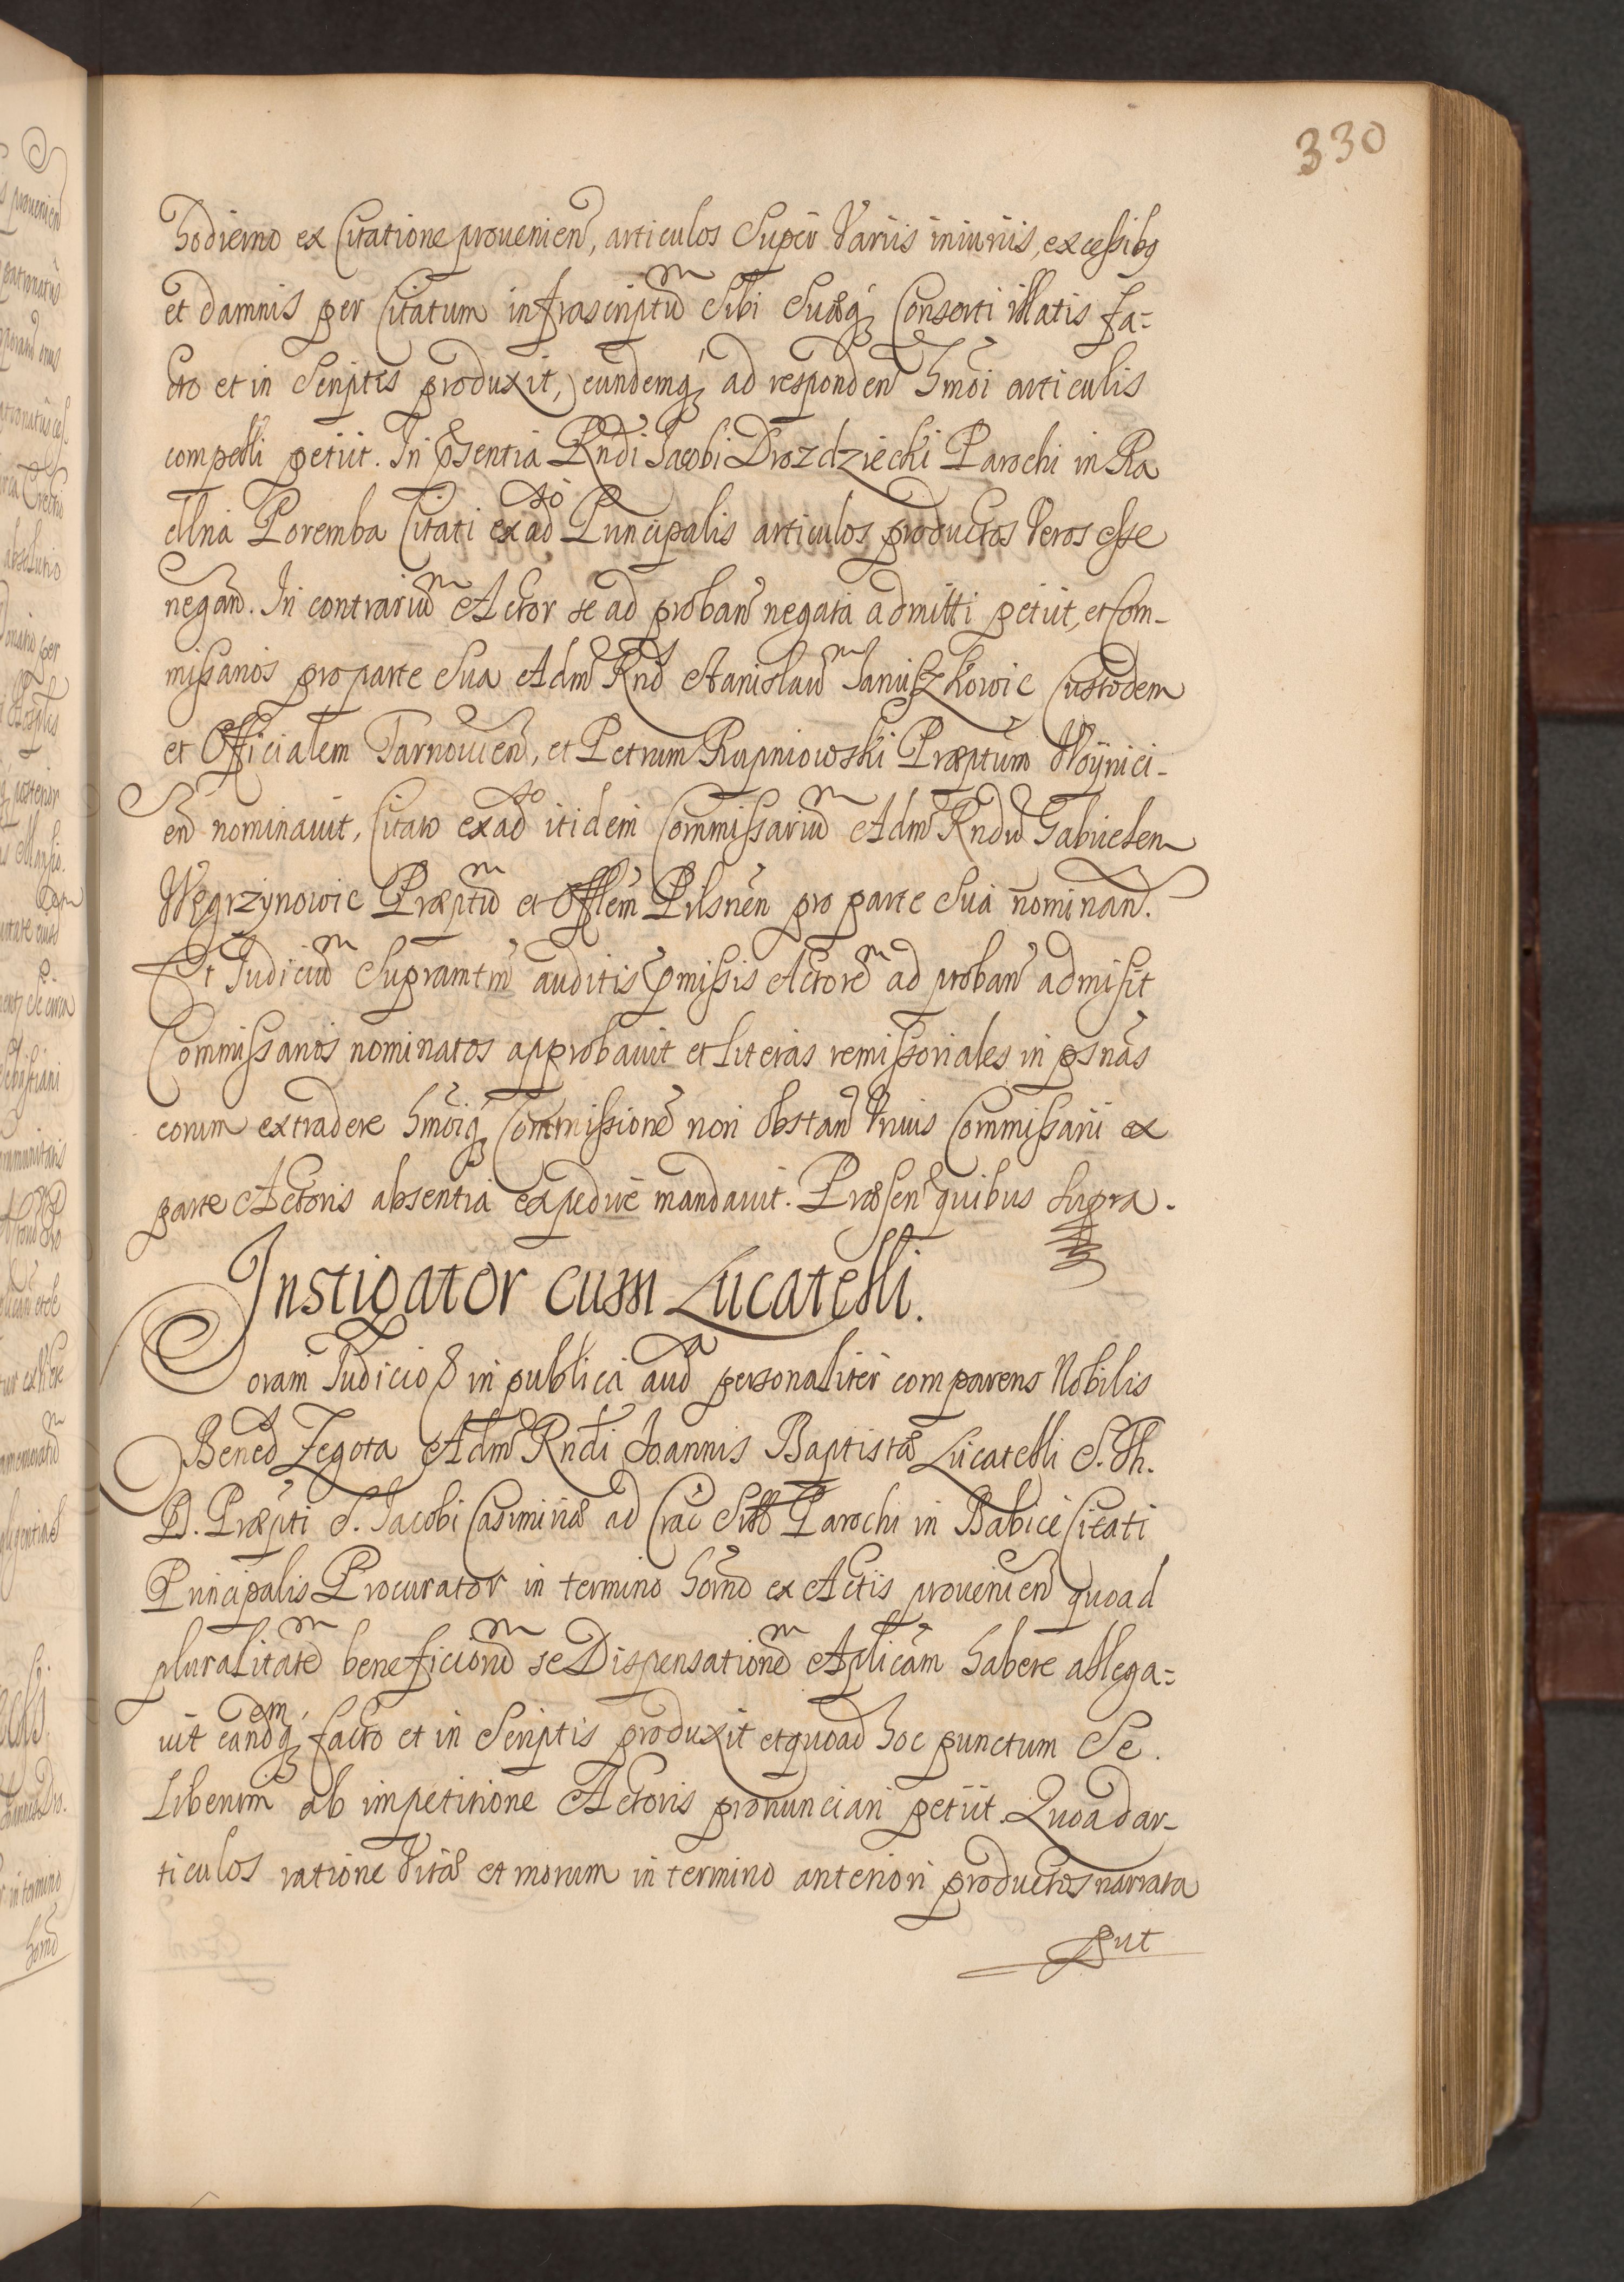 330
hodierno ex Citatione provenien, articulos Super Variis iniuriis, excessibq
et damnis per Citatum infrascriptũm Sibi Suæq Consorti illatis fa=
cto et in Scriptis produxit, eundemq ad responden hmõi articulis
compelli petiit. In pñsentia Rndi Jacobi Drozdziecki Parochi in Ra
dlna Poremba Citati ex adso Principalis articulos productos Veros esse
negan. In contrariũm Actor se ad proban negata admitti petiit, et Com-
missarios pro parte Sua Adm Rnd Stanislaũm Januszkowic Custodem
et Officialem Tarnovien, et Petrum Rupniowski Præptum Woÿnici-
en nominavit, Citato ex adso itidem Commissariũm Adm Rndũ Gabrielem
Węgrzynowic Præptũm et Offlem Pilsnen pro parte Sua nominan.
Et Judiciũm Supramtm auditis pmissis Actorẽm ad proban admisit
Commissarios nominatos approbavit et literas remissoriales in psnãs
eorum extradere hmõiq Commissionẽ non obstan Vnius Commissarii ex
parte Actoris absentia expedire mandavit. Præsen quibus Supra.
Instigator cum Lucatelli.
Coram Judicio & in publica aud personaliter comparens Nobilis
Bened Zegota Adm Rndi Joannis Baptistæ Lucatelli S. Th.
D. Præpti S. Jacobi Casimiriæ ad Crac Parochi in Babice Citati
Principalis Procurator in termino horno ex Actis provenien quoad
pluralitatẽm beneficiorũm se Dispensationẽm Aplicam habere allega=
vit eandemq facto et in Scriptis produxit et quoad hoc punctum Se.
Liberum ab impetitione Actoris pronunciari petiit. Quoad ar-
ticulos ratione Vitæ et morum in termino anteriori productos narrata
put